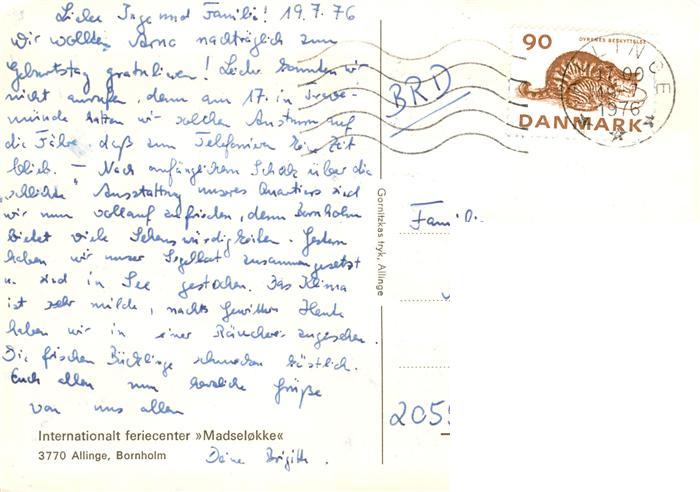 Liebe Inge und Familie! 19.7.76
Wir wollten Arno nachträglich zum
Geburtstag gratulieren! Leider konnten wir
nicht anrufen, denn am 17. in Trave-
münde hatten wir solchen Ansturm auf
die Fähre, daß zum Telefonieren keine Zeit
blieb. – Nach anfänglichem Schock über die
"schlichte" Ausstattung unseres Quartiers sind
wir nun vollauf zufrieden, denn Bornholm
bietet viele Sehenswürdigkeiten. Gestern
haben wir unser Segelboot zusammengesetzt
u. sind in See gestochen. Das Klima
ist sehr milde, nachts Gewitter. Heute
haben wir in einer Räucherei zugesehen.
Die frischen Bücklinge schmecken köstlich.
Euch allen nun herzliche Grüße
von uns allen
Deine Brigitte.
Internationalt feriecenter »Madseløkke«
3770 Allinge, Bornholm
Gornitzkas tryk, Allinge
BRD
90
DYRENES BESKYTTELSE
DANMARK
INGE
1976
Fam. D
2055